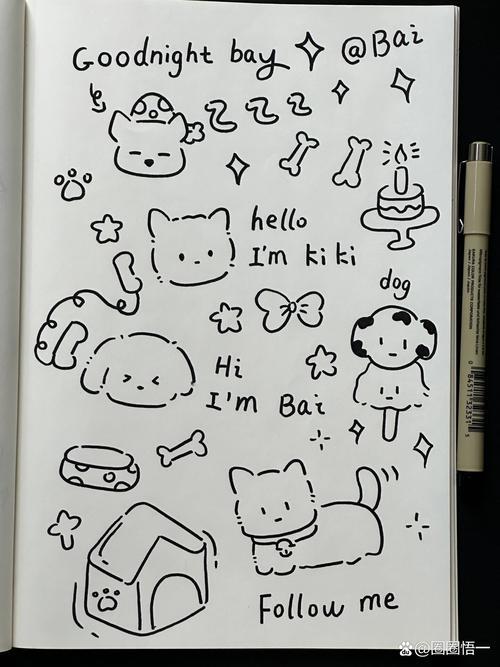 Goodnight bay @Bai
z z z
hello
I'm kiki
dog
Hi
I'm Bai
Follow me
@圈圈悟一